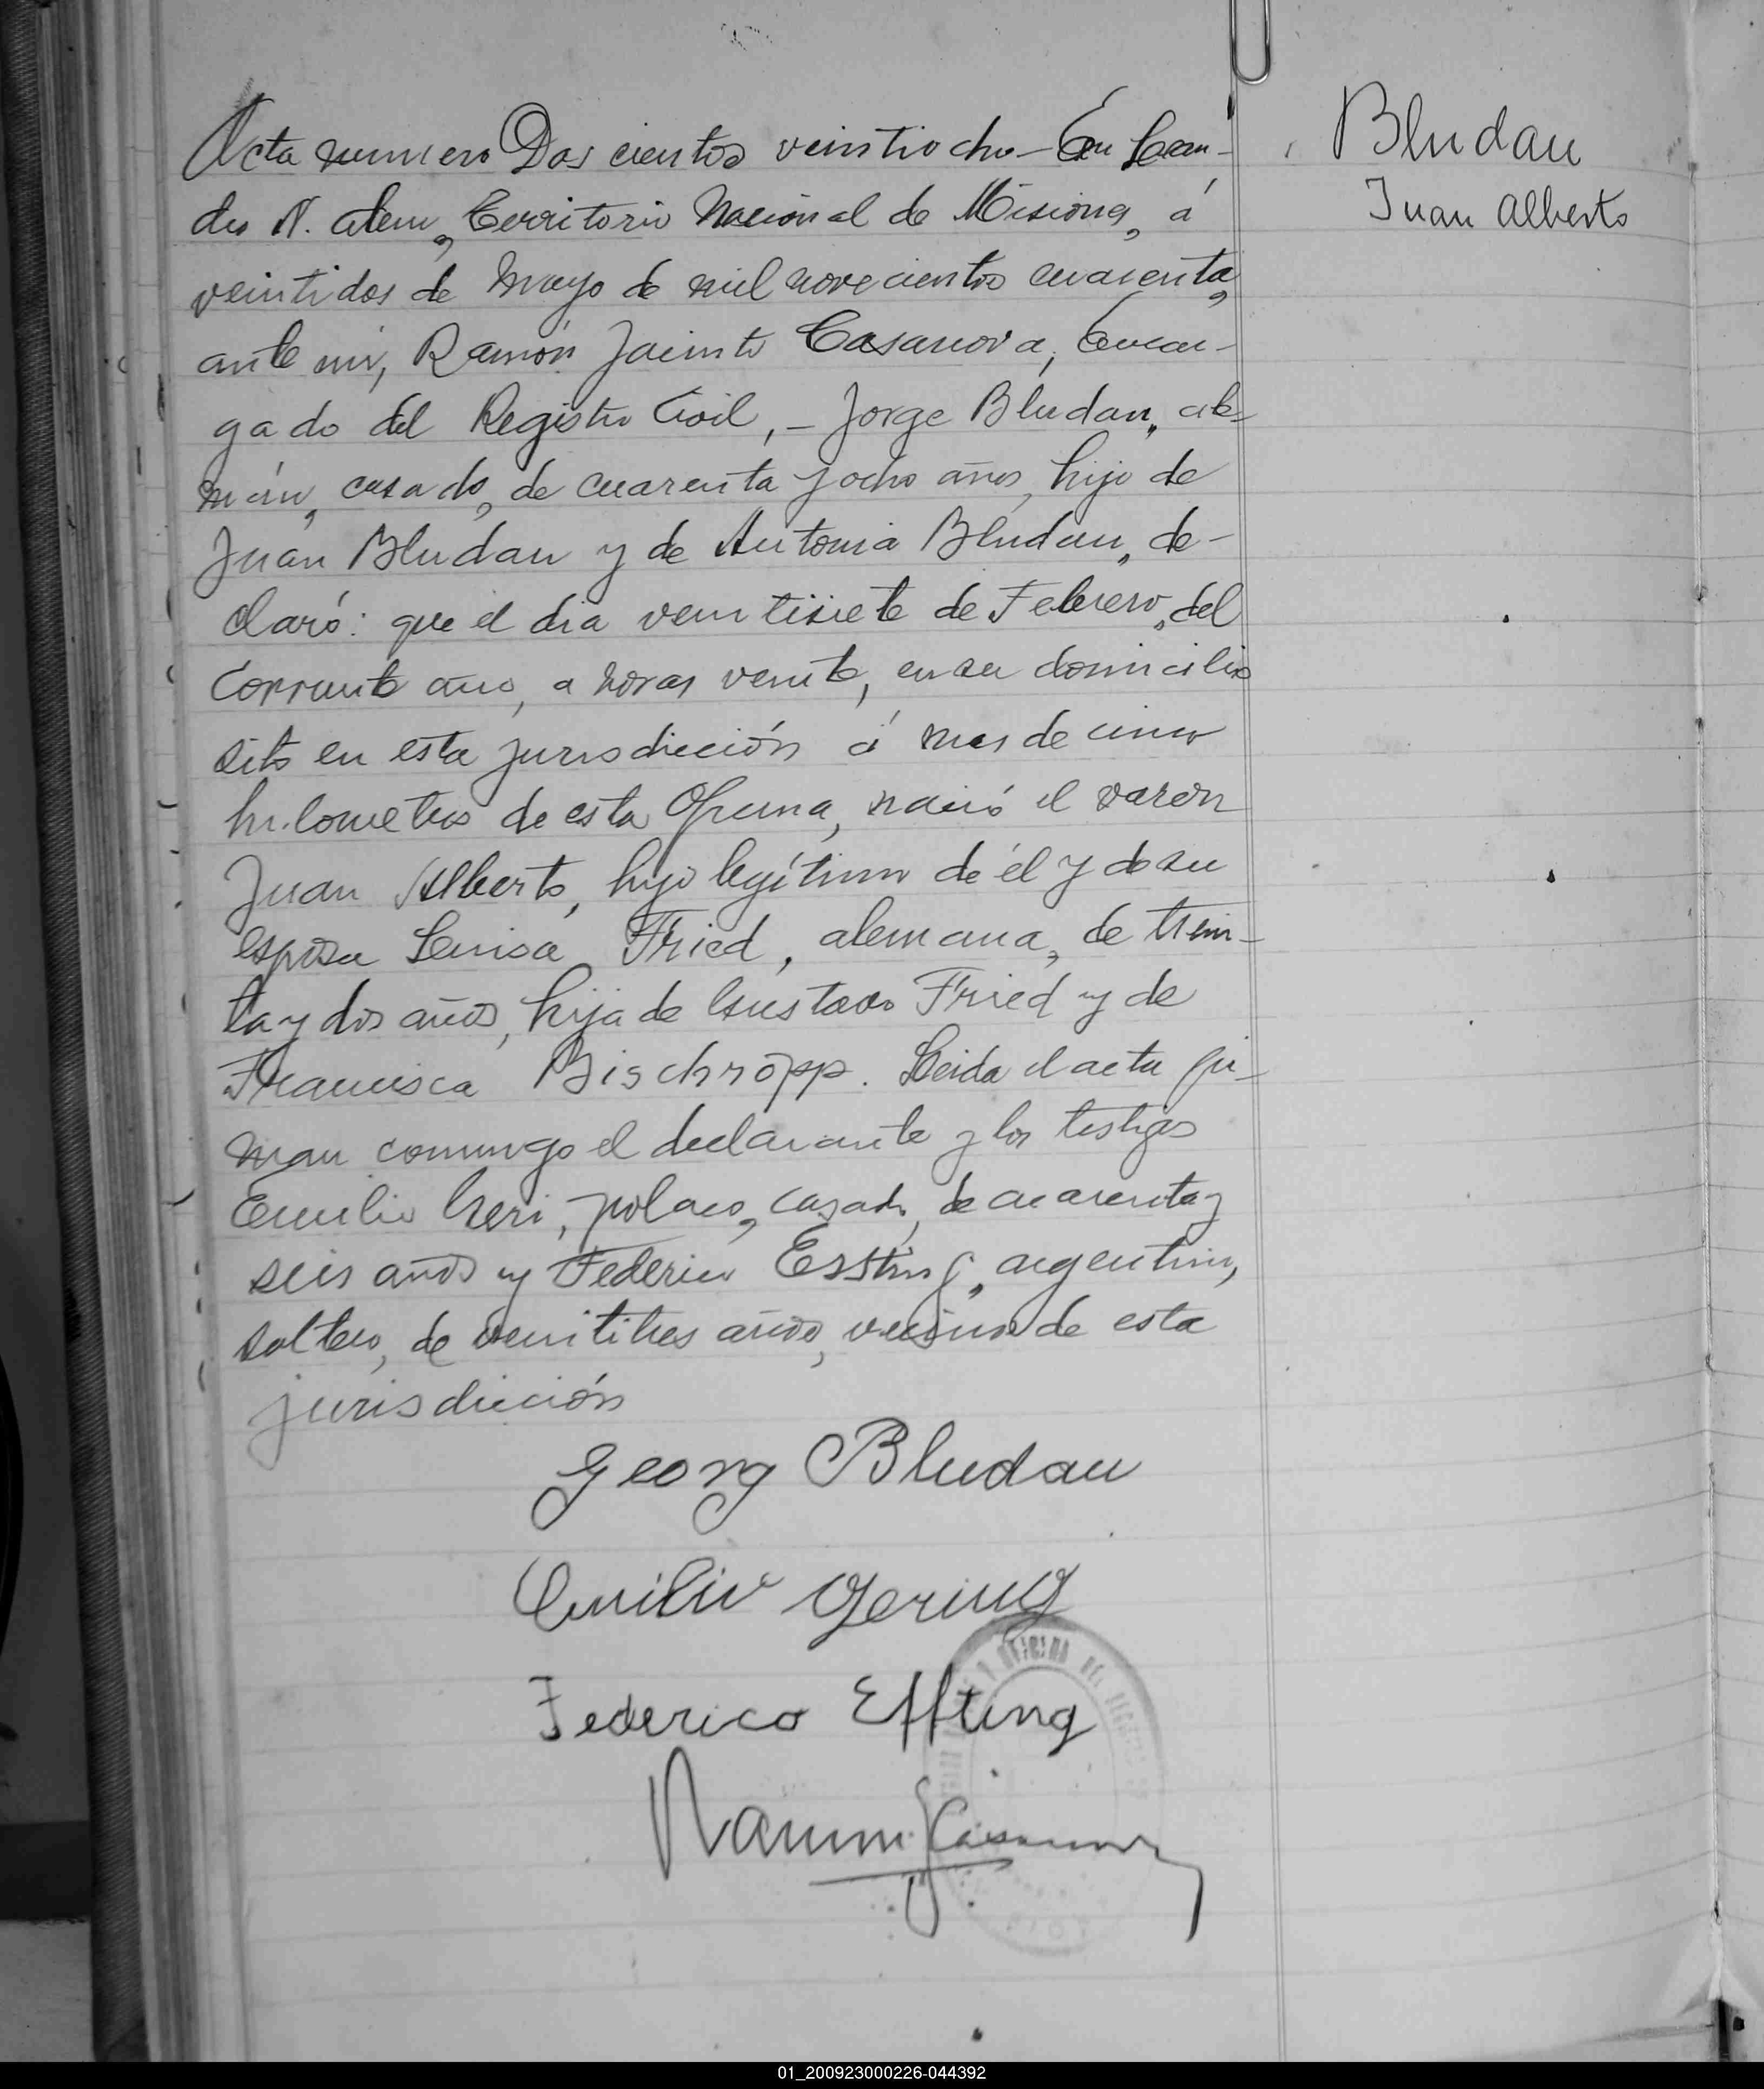 Acta numero Dos cientos veintiocho - En Lean-
dro N. Alem, Territorio Nacional de Misiones, á
veintidos de Mayo de mil novecientos cuarenta,
ante mi, Ramón Jacinto Casanova, Encar-
gado del Registro Civil, - Jorge Bludau, ale-
mán, casado, de cuarenta y ocho años, hijo de
Juan Bludau y de Antonia Bludau, de-
claró: que el dia veintisiete de Febrero, del
corriente año, a horas veinte, en su domicilio
sito en esta jurisdicción á mas de cinco
kilometros de esta Oficina, nació el varon
Juan Alberto, hijo legítimo de él y de su
esposa Luisa Fried, alemana, de trein-
ta y dos años, hija de Gustavo Fried y de
Francisca Bischropp. Leida el acta fir-
man conmigo el declarante y los testigos
Emilio Geri, polaco, casado, de cuarenta y
seis años y Federico Essting, argentino,
soltero, de veintitres años, vecinos de esta
jurisdicción
Georg Bludau
Emilio Gering
Federico Effting
Ramón J Casanova
Bludau
Juan Alberto
01_200923000226-044392